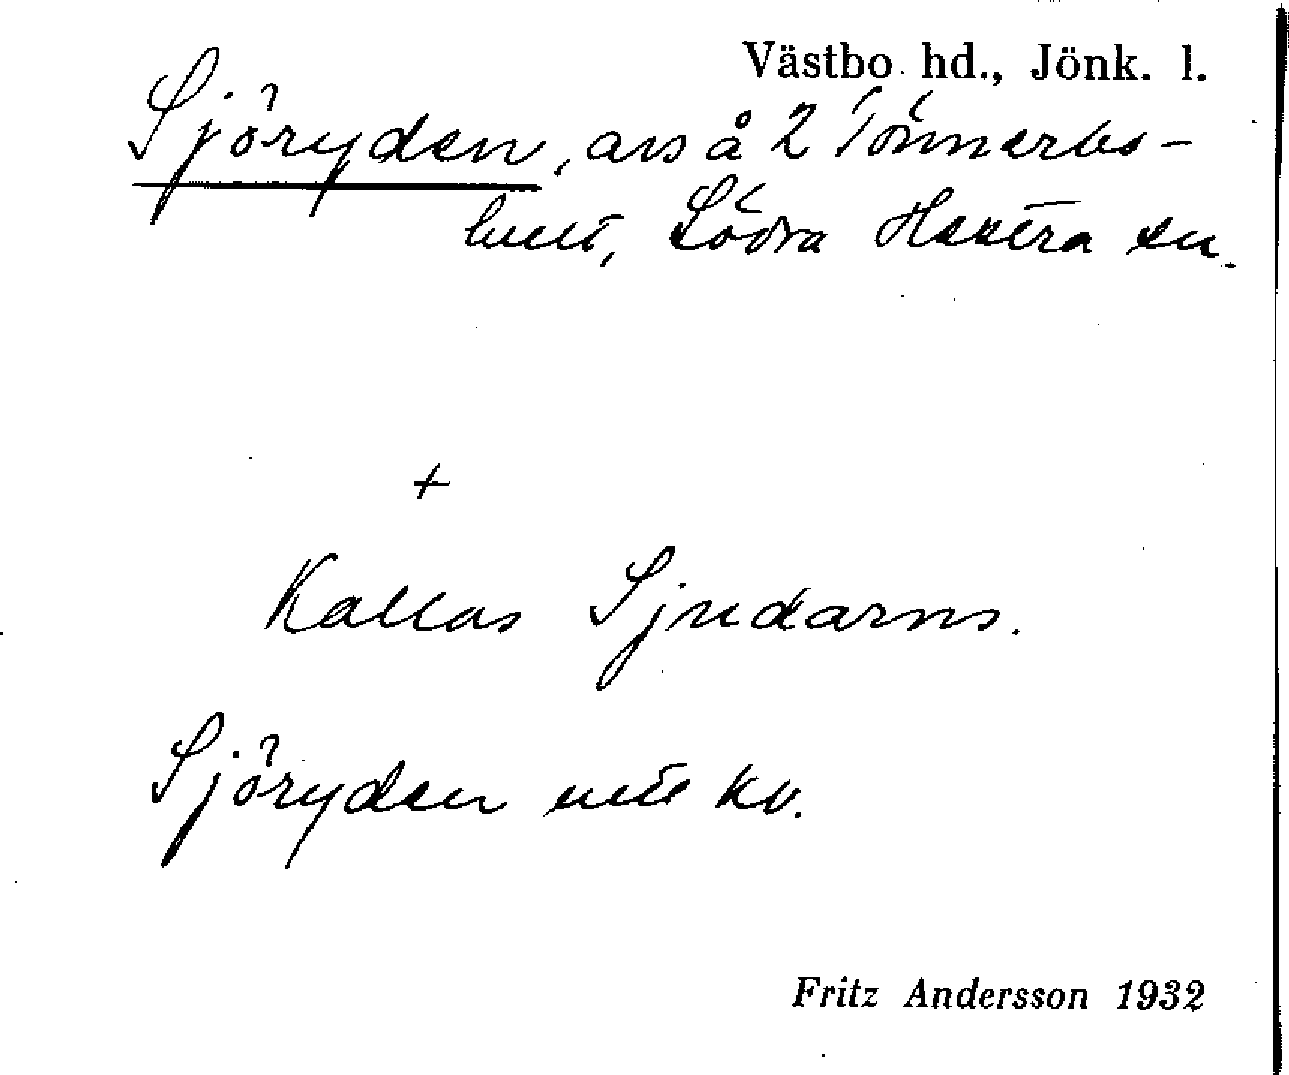 Västbo hd., Jönk. l.
Sjöryden, avs å 2 Tönnerbo-
hult, Södra Hestra sn.
+
Kallas Sjudarns.
Sjöryden inte kv.
Fritz Andersson 1932